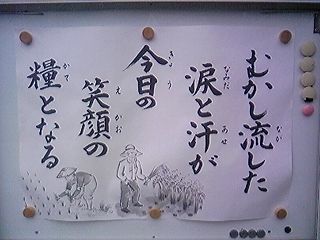 むかし流した
涙と汗が
今日の
笑顔の
糧となる